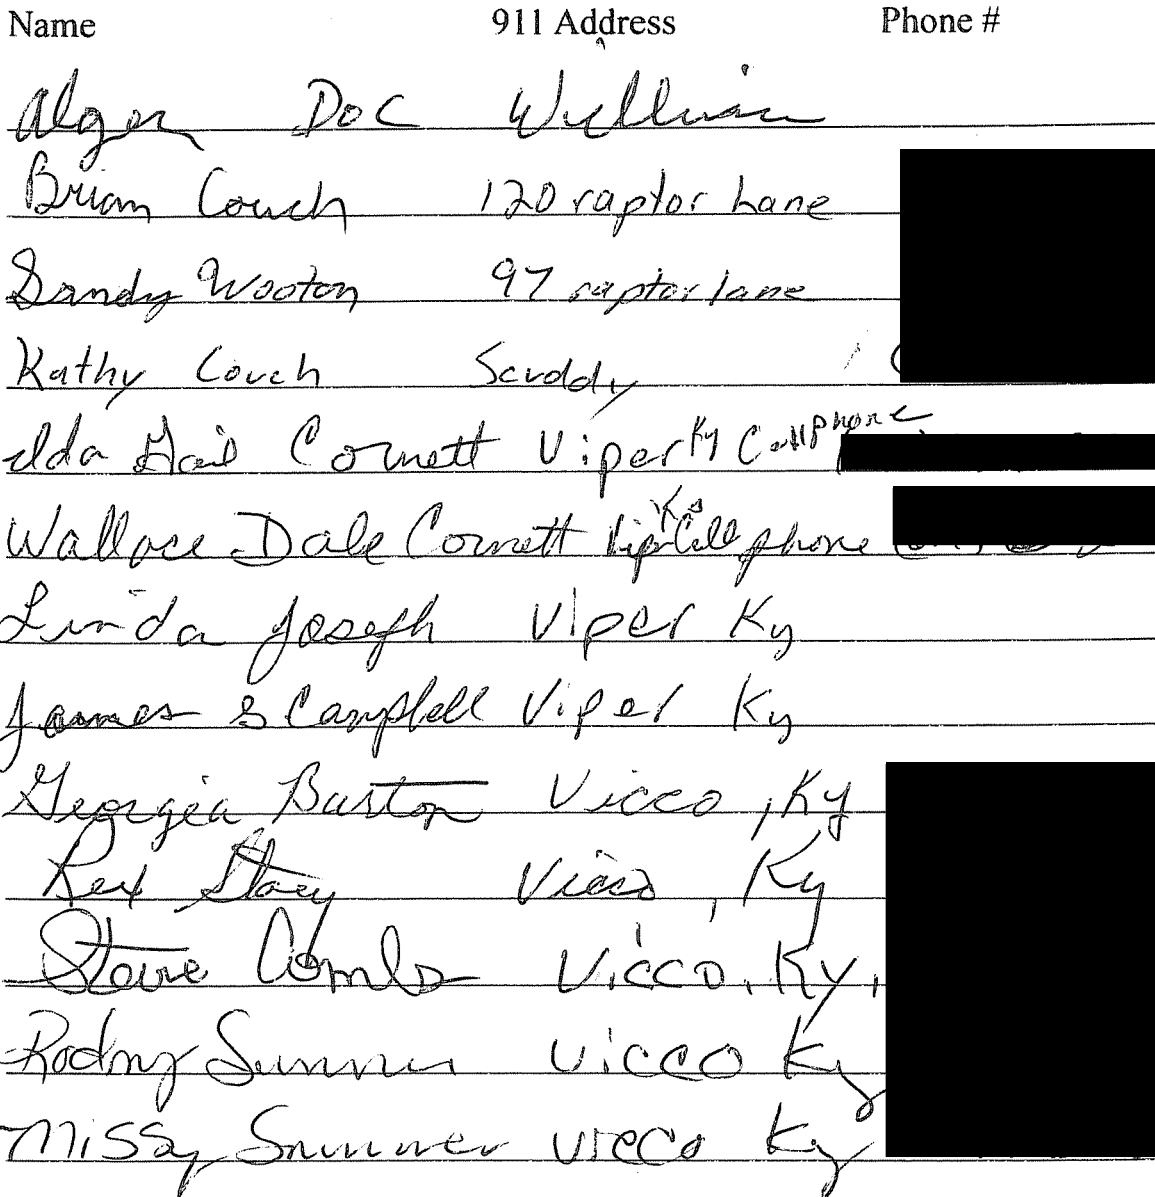 Name 911 Address Phone #
Alger Doc William
Brian Couch 120 raptor Lane
Sandy Wooton 97 raptor lane
Kathy Couch Scuddy
Ida Gail Cornett Viper Ky Cell Phone
Wallace Dale Cornett Viper Ky Cell phone
Linda Joseph Viper Ky
James S Campbell Viper Ky
Georgia Burton Vicco, Ky
Rex Stacy Vicco, Ky
Steve Combs Vicco, Ky,
Rodny Sumner Vicco Ky
Missy Sumner Vicco Ky